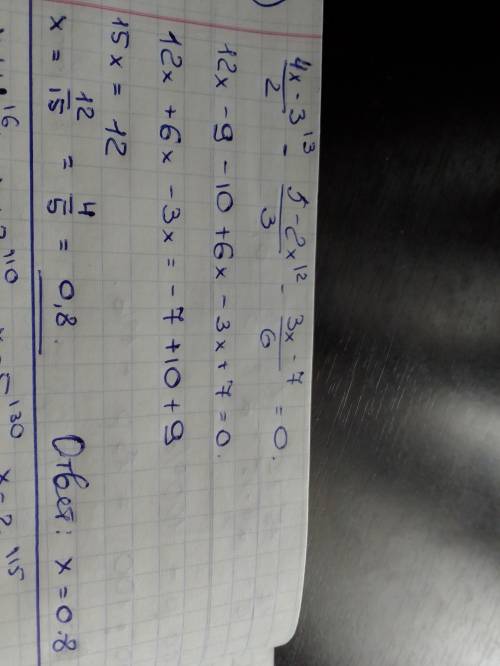 4x-3/2 \3 - 5-2x/3 \2 - 3x-7/6 = 0.
12x - 9 - 10 + 6x - 3x + 7 = 0.
12x + 6x - 3x = -7 + 10 + 9
15x = 12
x = 12/15 = 4/5 = 0,8. Ответ: x = 0.8